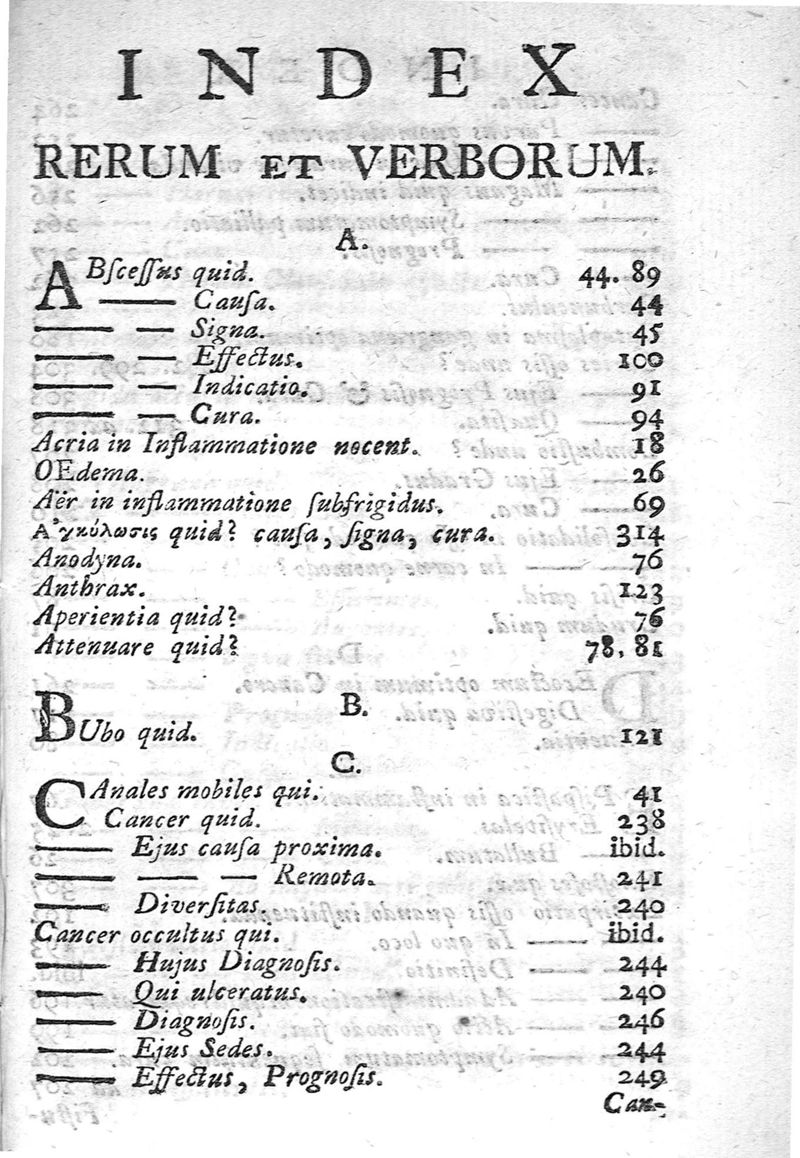 INDEX
RERUM ET VERBORUM.
A.
ABſceſſus quid. 44. 89
—— Cauſa. 44
—— — Signa. 45
—— — Effectus. 100
—— — Indicatio. 91
—— — Cura. 94
Acria in Inflammatione nocent. 18
OEdema. 26
Aër in inflammatione ſubfrigidus. 69
Ἀγκύλωσις quid? cauſa, ſigna, cura. 314
Anodyna. 76
Anthrax. 123
Aperientia quid? 76
Attenuare quid? 78, 81
B.
BUbo quid. 121
C.
CAnales mobiles qui. 41
Cancer quid. 238
—— Ejus cauſa proxima. ibid.
—— — — Remota. 241
—— Diverſitas. 240
Cancer occultus qui. ibid.
—— Hujus Diagnoſis. 244
—— Qui ulceratus. 240
—— Diagnoſis. 246
—— Ejus Sedes. 244
—— Effectus, Prognoſis. 249
Can-